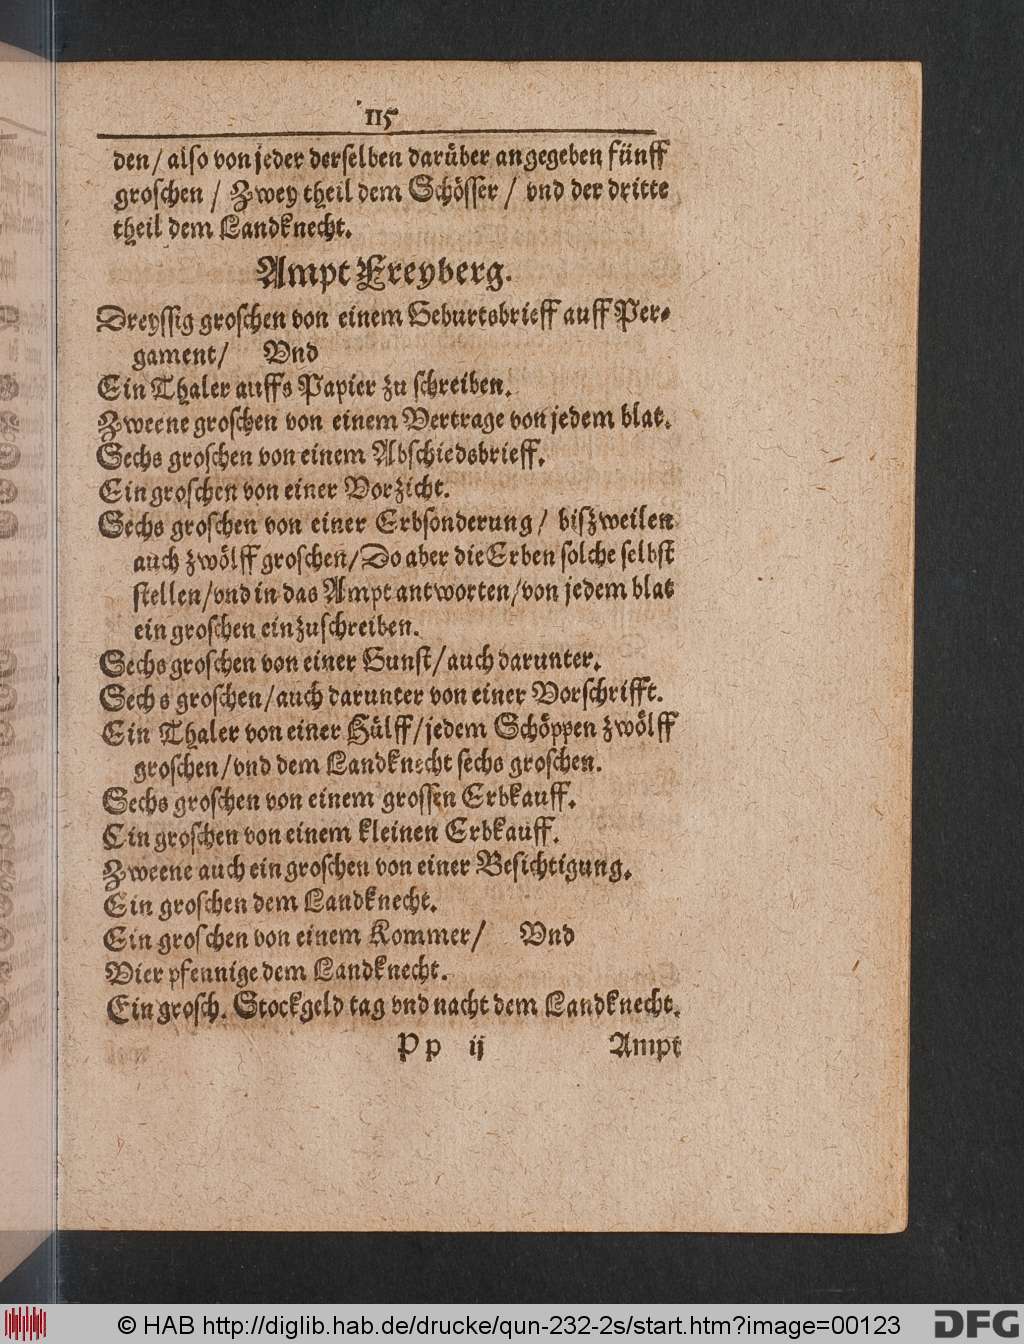 115
den/ also von jeder derselben darüber angegeben fünff
groschen / Zwey theil dem Schösser / vnd der dritte
theil dem Landknecht.
Ampt Freyberg.
Dreyssig groschen von einem Geburtsbrieff auff Per-
gament/ Vnd
Ein Thaler auffs Papier zu schreiben.
Zweene groschen von einem Vertrage von jedem blat.
Sechs groschen von einem Abschiedsbrieff.
Ein groschen von einer Vorzicht.
Sechs groschen von einer Erbsonderung/ biszweilen
auch zwölff groschen/Do aber die Erben solche selbst
stellen/vnd in das Ampt antworten/von jedem blat
ein groschen einzuschreiben.
Sechs groschen von einer Gunst/auch darunter.
Sechs groschen/auch darunter von einer Vorschrifft.
Ein Thaler von einer Hülff/jedem Schöppen zwölff
groschen/vnd dem Landknecht sechs groschen.
Sechs groschen von einem grossen Erbkauff.
Ein groschen von einem kleinen Erbkauff.
Zweene auch ein groschen von einer Besichtigung.
Ein groschen dem Landknecht.
Ein groschen von einem Kommer/ Vnd
Vier pfennige dem Landknecht.
Ein grosch. Stockgeld tag vnd nacht dem Landknecht.
Pp ij Ampt
© HAB http://diglib.hab.de/drucke/qun-232-2s/start.htm?image=00123
DFG